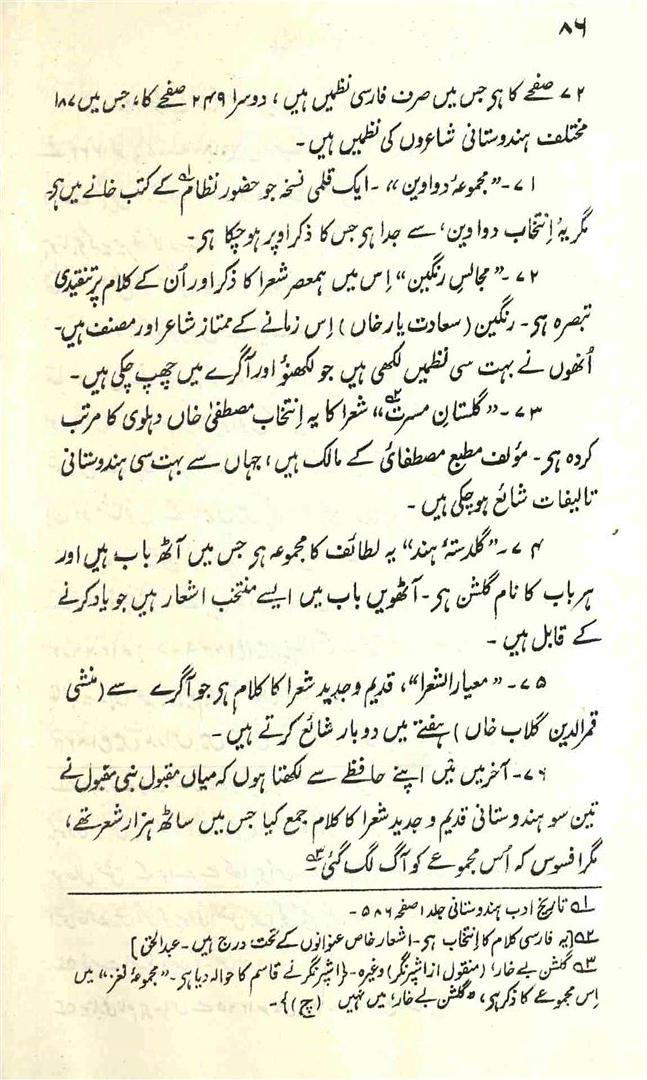 ۸۶
۷۲ صفحے کا ہی جس میں صرف فارسی نظمیں ہیں ، دوسرا ۲۴۹ صفحے کا، جس میں ۱۸۷
مختلف ہندوستانی شاعروں کی نظمیں ہیں۔
۷۱۔ ”مجموعۂ دواوین“ ۔ ایک قلمی نسخہ جو حضور نظام ؎۱ کے کتب خانے میں ہی۔
مگر یہ ’انتخاب دواوین‘ سے جدا ہی جس کا ذکر اوپر ہوچکا ہی۔
۷۲۔ ”مجالسِ رنگین“ اِس میں ہمعصر شعرا کا ذکر اور اُن کے کلام پر تنقیدی
تبصرہ ہی۔ رنگین (سعادت یار خاں) اِس زمانے کے ممتاز شاعر اور مصنف ہیں۔
اُنھوں نے بہت سی نظمیں لکھی ہیں جو لکھنؤ اور آگرے میں چھپ چکی ہیں۔
۷۳۔ ”گلستانِ مسرت ؎۲“ شعرا کا یہ اِنتخاب مصطفیٰ خاں دہلوی کا مرتب
کردہ ہی۔ مؤلف مطبع مصطفائی کے مالک ہیں، جہاں سے بہت سی ہندوستانی
تالیفات شائع ہوچکی ہیں۔
۷۴۔ ”گلدستۂ ہند“ یہ لطائف کا مجموعہ ہی جس میں آٹھ باب ہیں اور
ہر باب کا نام گلشن ہی۔ آٹھویں باب میں ایسے منتخب اشعار ہیں جو یاد کرنے
کے قابل ہیں۔
۷۵۔ ”معیار الشعرا“، قدیم و جدید شعرا کا کلام ہی جو آگرے سے (منشی
قمرالدین گلاب خاں) ہفتے میں دو بار شائع کرتے ہیں۔
۷۶۔ آخر میں میں اپنے حافظے سے لکھتا ہوں کہ میاں مقبول نبی مقبول نے
تین سو ہندوستانی قدیم و جدید شعرا کا کلام جمع کیا جس میں ساٹھ ہزار شعر تھے،
مگر افسوس کہ اُس مجموعے کو آگ لگ گئی ؎۳۔
؎۱ تاریخ ادب ہندوستانی جلد ۱ صفحہ ۵۸۶۔
؎۲ [یہ فارسی کلام کا اِنتخاب ہی۔ اشعار خاص عنوانوں کے تحت درج ہیں۔ عبدالحق]
؎۳ گلشن بے خار، (منقول از اشپرنگر) وغیرہ۔ {اشپرنگر نے قاسم کا حوالہ دیا ہی۔ ”مجموعۂ نغز“ میں
اِس مجموعے کا ذکر ہی، ”گلشن بے خار“ میں نہیں (چ)}۔